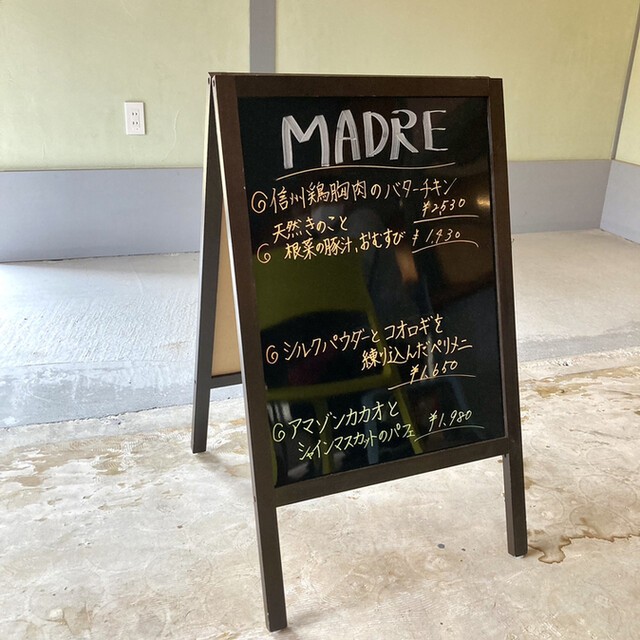 MADRE
信州鶏胸肉のバターチキン
¥2,530
天然きのこと
根菜の豚汁、おむすび ¥1,430
シルクパウダーとコオロギを
練り込んだペリメニ
¥1,650
アマゾンカカオと
シャインマスカットのパフェ ¥1,980